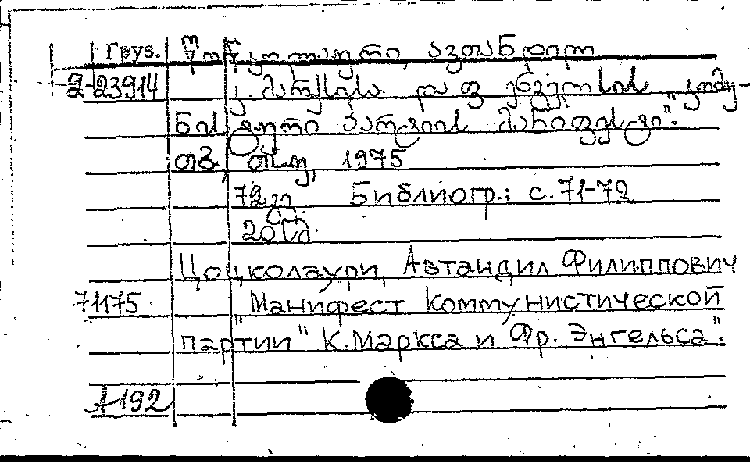 Груз. წოწკოლაური, ავთანდილ
2-23914 კ. მარქსისა და ფ. ენგელსის "კომუ-
ნისტური პარტიის მანიფესტი".
თბ., თსუ, 1975
72 გვ. Библиогр.: с. 71-72
20 კაპ.
Цоцколаури, Автандил Филиппович
71175 "Манифест Коммунистической
партии" К. Маркса и Фр. Энгельса".
1-192